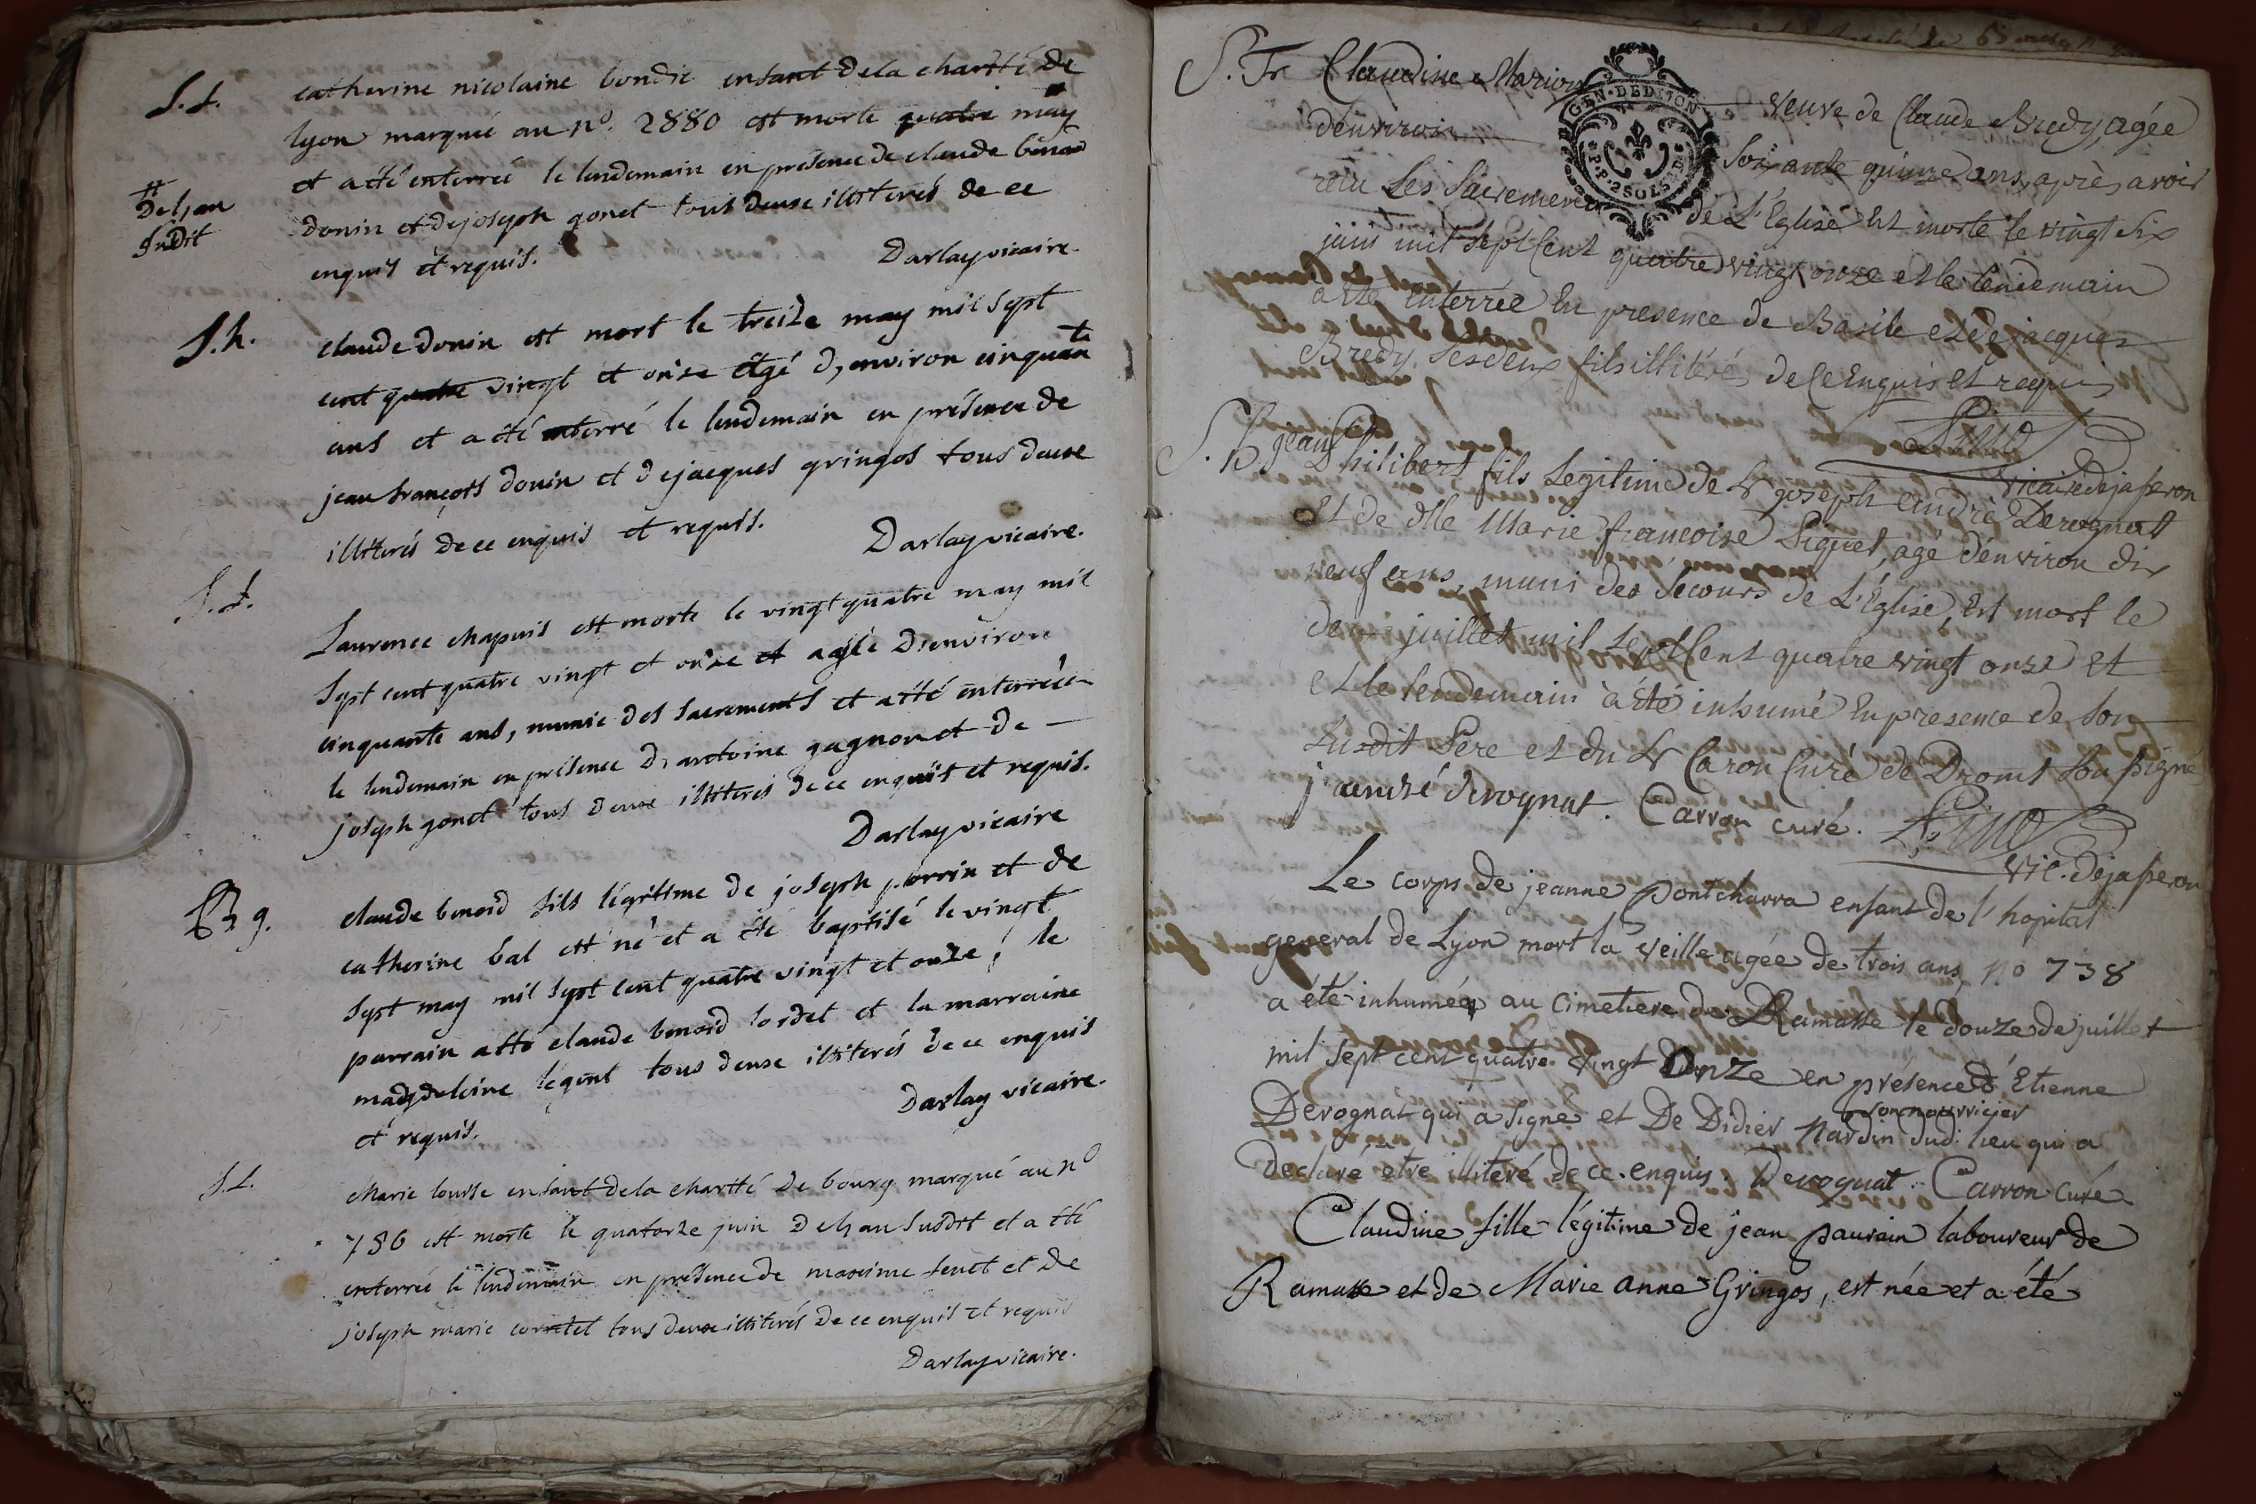 S. f.
catherine nicolaine bondie enfant de la charité de
lyon marquée au n°. 2880 est morte quatre may #
et a été enterrée le lendemain en présence de claude benoid
donin et de joseph gonet tous deuxe illiterés de ce
enquis et requis.
Darlay vicaire.
#
de l'an
susdit
S. h.
claude donin est mort le treize may mil sept
cent quatre vingt et onze agé d'environ cinquante
ans et a été enterré le lendemain en présence de
jean françois donin et de jacques gringos tous deuxe
illiterés de ce enquis et requis.
Darlay vicaire.
S. f.
Laurence chapuis est morte le vingt quatre may mil
sept cent quatre vingt et onze et agée d'environ
cinquante ans, munie des sacrements et a été enterrée
le lendemain en présence d'antoine gagnon et de —
joseph gonet tous deuxe illiterés de ce enquis et requis.
Darlay vicaire
B g.
claude benoid fils légitime de joseph perrin et de
catherine bal est né et a été baptisé le vingt
sept may mil sept cent quatre vingt et onze, le
parrain a été claude benoid sordet et la marraine
magdeleine légent tous deuxe illiterés de ce enquis
et requis.
Darlay vicaire.
S. f.
Marie louise enfant de la charité de bourg marqué au n°
786 est morte le quatorze juin de l'an susdit et a été
enterrée le lendemain en présence de maxime fenet et de
joseph marie cornetet tous deuxe illiterés de ce enquis et requis
Darlay vicaire.
S. Fe
GEN. DE DIJON
P.P. 2 SOLS 8 D
Claudine Marion veuve de Claude Bredy, agée
d'environ soixante quinze ans, après avoir
reçu Les Sacremens de L'Eglise Est morte le vingt six
juin mil sept Cent quatre vingt onze et le lendemain
a été enterrée En presence de Basile et de jacques
Bredy, ses deux fils illitérés de ce Enquis et requis
vicaire de jasseron
S. h
jean Philibert fils Legitime de Sr joseph andré Derognat
Et de dlle Marie françoise Piquet, agé d'environ dix
neuf ans, muni des secours de L'Eglise, Est mort le
deux juillet mil sept Cent quatre vingt onze et
et le lendemain a été inhumé En presence de son
susdit Pere et du Sr Caron Curé de Droms Soussigné
j andré derognat. Carron curé.
vic. de jasseron
Le corps de jeanne pontcharra enfant de l'hopital
general de Lyon mort la veille agée de trois ans, no 738
a été inhumée au cimetiere de Ramasse le douze de juillet
mil sept cent quatre vingt Onze en presence d'Etienne
Derognat qui a signé et De Didier nardin son nourricier dudt lieu qui a
Declaré etre illiteré de ce enquis. Derognat. Carron curé
Claudine fille légitime de jean paurain laboureur de
Ramasse et de Marie anne Gringos, est née et a été